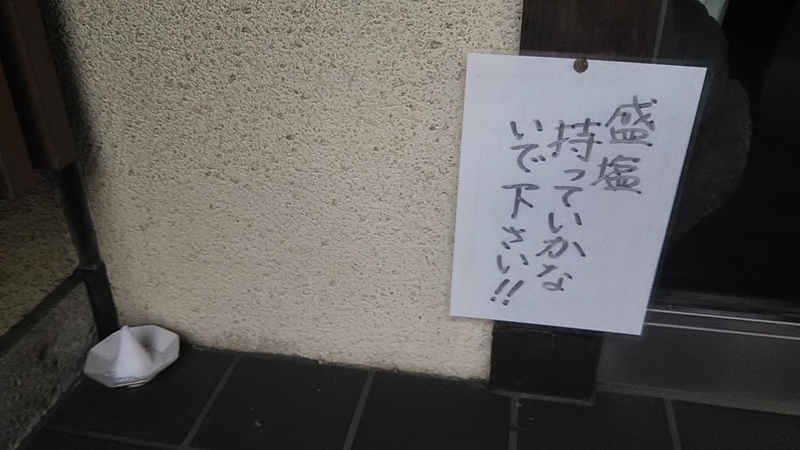 盛塩
持っていかな
いで下さい!!